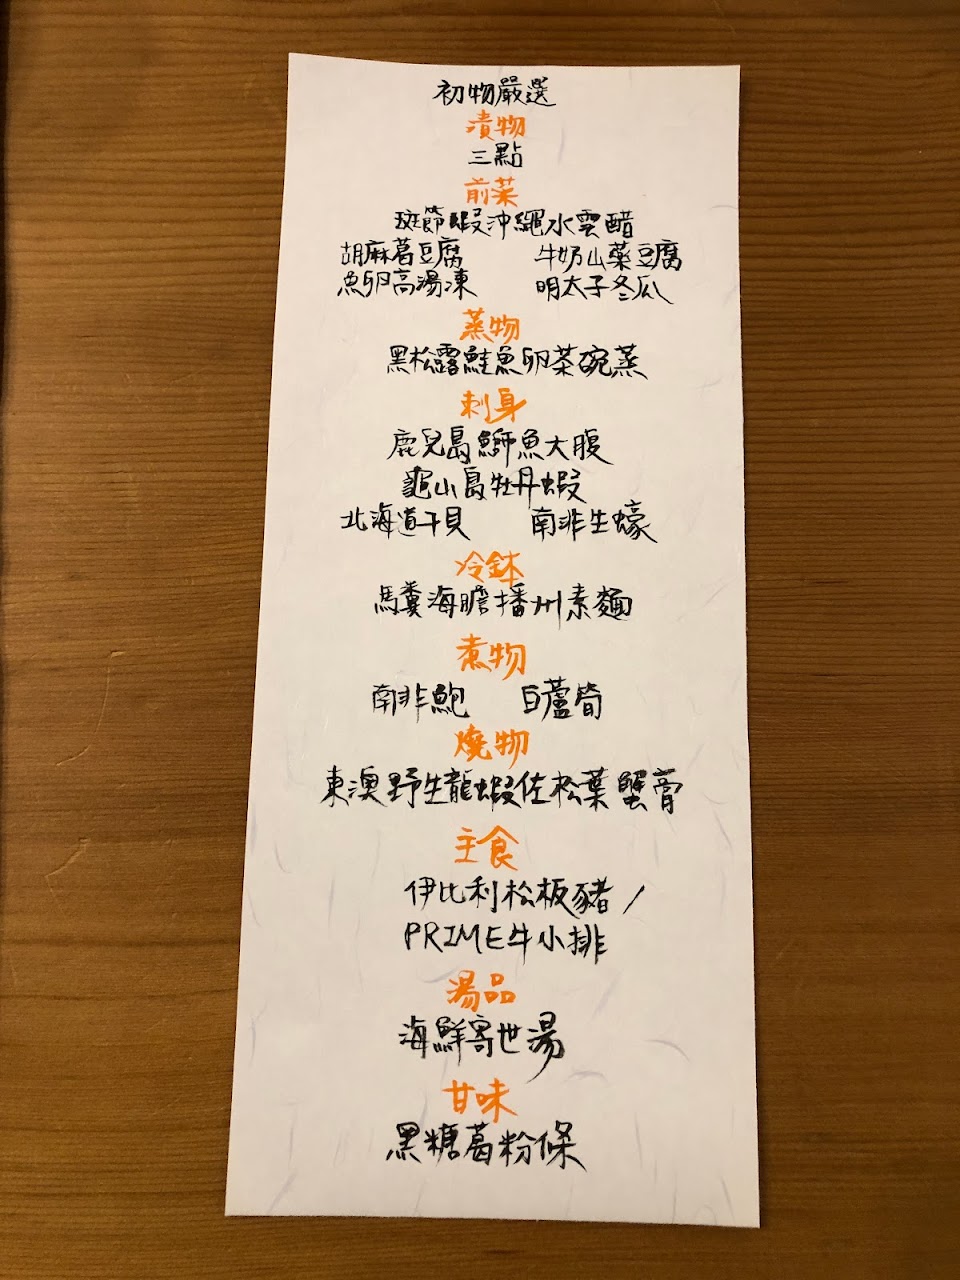 初物嚴選
漬物
三點
前菜
斑節蝦沖繩水雲醋
胡麻葛豆腐 牛奶山藥豆腐
魚卵高湯凍 明太子冬瓜
蒸物
黑松露鮭魚卵茶碗蒸
刺身
鹿兒島鰤魚大腹
龜山島牡丹蝦
北海道干貝 南非生蠔
冷鉢
馬糞海膽播州素麵
煮物
南非鮑 白蘆筍
燒物
東澳野生龍蝦佐松葉蟹膏
主食
伊比利松板豬/
PRIME牛小排
湯品
海鮮寄世湯
甘味
黑糖葛粉條